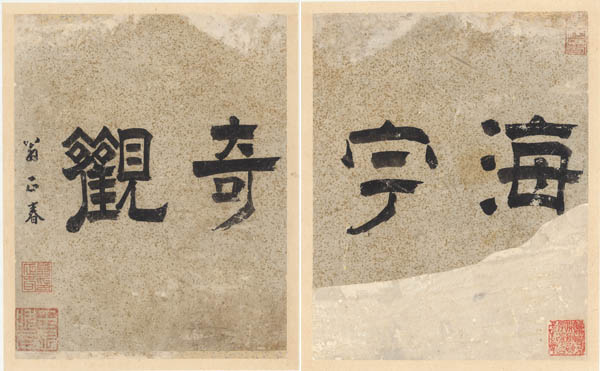 海宇奇觀
翁正春